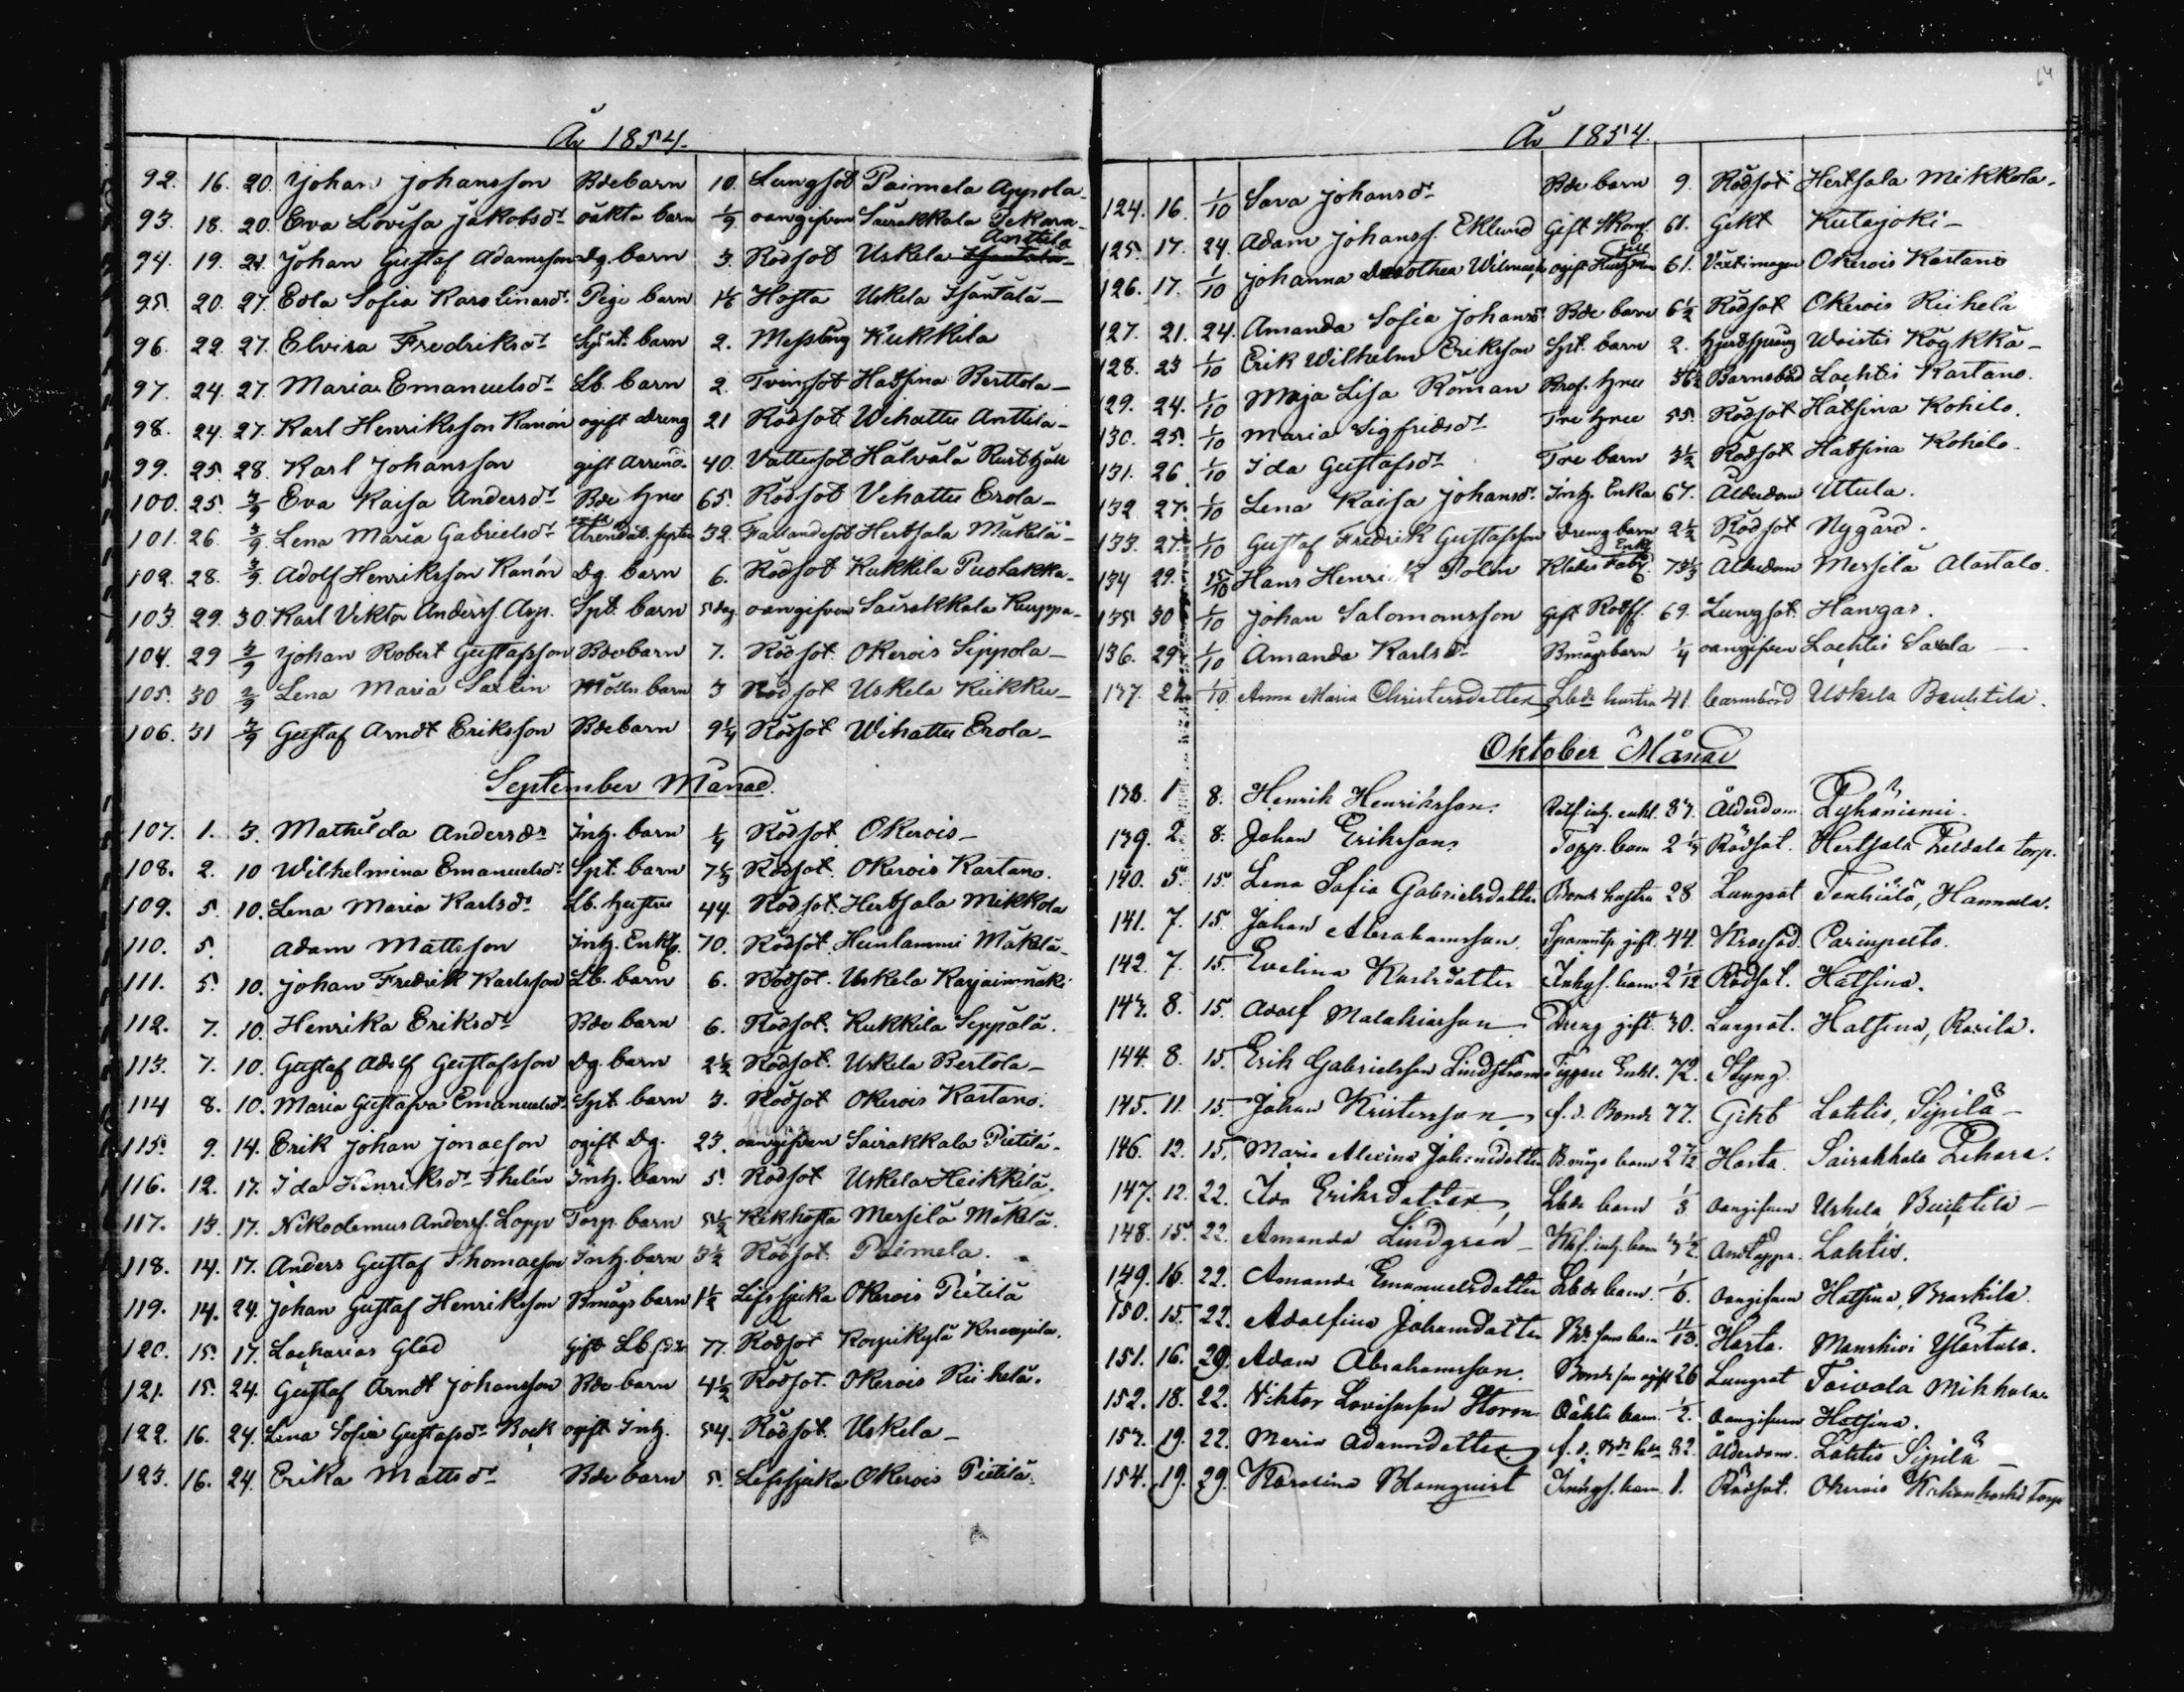 År 1854.
92. 16. 20. Johan Johansson Bdebarn 10. Lungsot Paimela Appola
93. 18. 20. Eva Lovisa Jakobsdr oäkta barn 1/9 oangifven Sairakkala Pekara
Anttila
94. 19. 21. Johan Gustaf Adamsson Dg. barn 3. Rödsot Uskela
95. 20. 27. Eola Sofia Karolinasdr Pige barn Hosta Uskela Isäntälä
96. 22. 27. Elvira Fredriksdr barn 2. Messling Kukkila
97. 24. 27. Maria Emanuelsdr Lb. barn 2. Tvinsot Hatsina Berttola
98. 24. 27. Karl Henriksson Kanón ogift dreng 21 Rödsot Wihattu Anttila
99. 25. 28. Karl Johansson gift Arrend. 40. Vattusot Hälvälä Rusthåll
100. 25. 3/9 Eva Kaisa Andersdr Bde hru 65. Rödsot Vihattu Erola
101. 26. 3/9. Lena Maria Gabrielsdr Arendat. syster 32. Fallandesot Hertsala Mäkelä
102. 28. 3/9. Adolf Henriksson Kanón Dg. barn 6. Rödsot Kukkila Pustakka
103. 29. 30. Karl Viktor Anderss. Arp. Spt. barn 5 dag. oangifven Sairakkala Kurppa
104. 29 3/9 Johan Robert Gustafsson Bdebarn 7. Rödsot. Okerois Seppola
105. 30 3/9 Lena Maria Saxlin Mölln. barn 3 Rödsot Uskela Kiikku
106. 31 3/9 Gustaf Arndt Eriksson Bdebarn 9 1/4 Rödsot Wihattu Erola
September Månad.
107. 1. 3. Mathilda Andersdr Inh. barn 1/4 Rödsot. Okerois
108. 2. 10 Wilhelmina Emanuelsdr Spt. barn 7 Rödsot. Okerois Kartano.
109. 5. 10. Lena Maria Karlsdr Lb. hustru 44. Rödsot. Hertsala Mikkola
110. 5. Adam Mattsson Inh. Enkl. 70. Rödsot. Heinlammi Mäkelä
111. 5. 10. Johan Fredrik Karlsson Lb. barn 6. Rödsot. Uskela Karjainmäki
112. 7. 10. Henrika Eriksdr Bde barn 6. Rödsot. Kukkila Seppälä.
113. 7. 10. Gustaf Adolf Gustafsson Dg. barn 2 1/2 Rödsot. Uskela Bertola
114 8. 10. Maria Gustafva Emanuelsdr Spt. barn 3. Rödsot Okerois Kartano.
115. 9. 14. Erik Johan Jonasson ogift Dg. 23. oangifven Sairakkala Pietilä.
116. 12. 17. Ida Henriksdr Thelén Inh. barn 5. Rödsot Uskela Heikkilä.
117. 13. 17. Nikodemus Anderss. Lopp Torp. barn 5 1/2 Kikhosta Mersilä Mäkelä.
118. 14. 17. Anders Gustaf Thomasson Inh. barn 3 1/2 Rödsot. Paimela.
119. 14. 24. Johan Gustaf Henriksson Bmågs barn 1 1/2 Lefssjuka Okerois Pietilä
120. 15. 17. Zacharias Glad Gift Lb. 77. Rödsot Korpikylä
121. 15. 24. Gustaf Arndt Johansson Bde barn 4 1/2 Rödsot. Okerois Riihelä.
122. 16. 24. Lena Sofia Gustafsdr Bock ogift Inh. 54. Rödsot. Uskela
123. 16. 24. Erika Mattsdr Bde barn 5. Lefssjuka Okerois Pietilä.
År 1854.
124. 16. 1/10 Sara Johansdr Bde barn 9. Rödsot Hertsala Mikkola
125. 17. 24. Adam Johanss. Eklund Gift 61. Gikt Kutajoki
126. 17. 1/10 Johanna Dorothea ogift 61. Okerois Kartano
127. 21. 24. Amanda Sofia Johansdr Bde barn 6 1/2 Rödsot Okerois Riihelä
128. 23 1/10 Erik Wilhelm Eriksson Spt. barn 2. Wäistis
129. 24. 1/10 Maja Lisa Roman hru Barnsbörd Lachtis Kartano.
130. 25. 1/10 Maria Sigfridsdr Tre hru 55. Rödsot Hatsina Kohilo.
131. 26 1/10 Ida Gustafsdr Tre barn 3 1/2 Rödsot Hatsina Kohilo.
132 27 1/10 Lena Kaisa Johansdr Inh. Enka 67. Ålderdom Uttula.
133. 27. 1/10 Gustaf Fredrik Gustafsson Dreng barn 2 1/2 Rödsot Nygård.
134 29. 15/10 Hans Henrik Polón Klädes Ålderdom Mersilä Alastalo.
135 30 1/10 Johan Salomonsson Gift 69. Lungsot. Hangas.
136. 29 1/10 Amanda Karlsdr Bmågsbarn 1/4 oangifven Lachtis Saxala
137. 27 1/10 Anna Maria Christersdotter Lbde hustru 41. barnsbörd Uskela Benttila.
Oktober Månad
138. 1 8. Henrik Henriksson. inh. enkl. 87. Ålderdom Pyhäniemi.
139. 2. 8. Johan Eriksson Torp. barn Rödsot. Hertsala torp.
140. 5. 15. Lena Sofia Gabrielsdotter Bonde hustru 28 Lungsot Tenhiälä, Hannula.
141. 7. 15. Johan Abrahamsson. gift. 44. Parinpelto.
142. 7. 15. Evelina Karlsdotter Inhys. barn 2 1/12 Rödsot. Hatsina.
143. 8. 15. Adolf Malakiasson Dreng gift. 30. Lungsot. Hatsina, Rasila.
144. 8. 15. Erik Gabrielsson Lindström Tiggare Enkl. 72. Styng.
145. 11. 15. Johan Kristersson f. d. Bonde 77. Gikt Lahtis, Sipilä
146. 12. 15. Maria Alexina Johansdotter Bmågs barn Hosta. Sairakkala Pekara.
147. 12. 22. Ida Eriksdotter Lbde barn 1/3 oangifven Uskela, Benttila
148. 15. 22. Amanda Lindgrén inh. barn Andtäppa. Lahtis.
149. 16. 22. Amanda Emanuelsdotter Lbde barn. 1/6. oangifven Hatsina,
150. 15. 22. Adolfina Johansdotter barn 11/13. Hosta. Manskivi Ylästalo.
151. 16. 29. Adam Abrahamsson. Bonde son ogift 26 Lungsot Toivola Mikkola
152. 18. 22. Viktor Lovisasson Oäkta barn. 1/2. oangifven Hatsina.
153. 19. 22. Maria Adamsdotter f. d. 82. Ålderdom. Lahtis Sipilä
154. 19. 29. Karolina Blomqvist barn. 1. Rödsot. Okerois torp